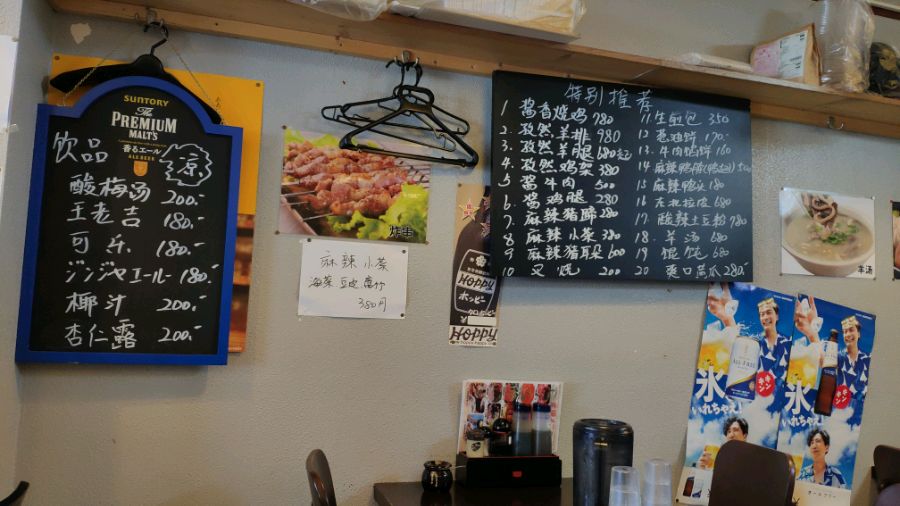 SUNTORY
The
PREMIUM
MALT'S
香るエール
ALE BEER
饮品
凉
酸梅汤 200.-
王老吉 180.-
可乐 180.-
ジンジャエール 180.-
椰汁 200.-
杏仁露 200.-
炸串
麻辣小菜
海菜 豆皮 腐竹
380円
HOPPY
ホッピー
HOPPY
特别推荐
1 酱香烧鸡 780
2. 孜然羊排 980
3. 孜然羊腿 680
4. 孜然鸡架 380
5 酱牛肉 500
6. 酱鸡腿 280
7 麻辣猪蹄 280
8 麻辣小菜 380
9 麻辣猪耳朵 600
10 叉烧 200
11 生煎包 350
12 葱油饼 170.-
13. 牛肉馅饼 160
14 麻辣鸭脖
15 麻辣鸭头 180
16 东北拉皮 680
17 酸辣土豆粉 780
18. 羊汤 680
19 馄饨 680
20 爽口黄瓜 280.-
羊汤
ALL-FREE
キンキン
氷
いれちゃえ!
キンキン
氷
いれちゃえ!
オールフリー